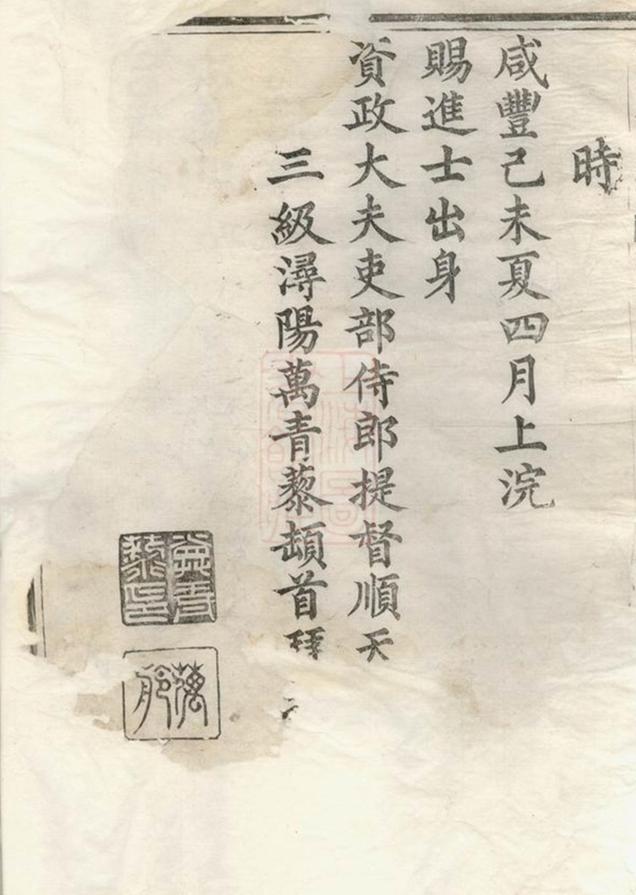 時
咸豐己未夏四月上浣
賜進士出身
資政大夫吏部侍郎提督順天
三級潯陽萬青藜頓首拜